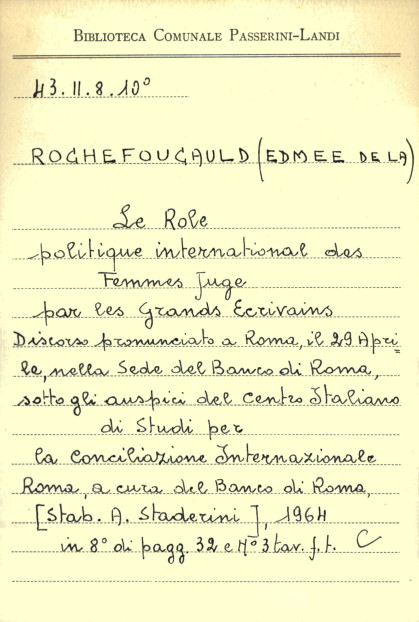 BIBLIOTECA COMUNALE PASSERINI-LANDI
43.11.8.10°
ROCHEFOUCAULD (EDMEE DE LA)
Le Role
politique international des
Femmes Juge
par les Grands Ecrivains
Discorso pronunciato a Roma, il 29 Apri=
le, nella Sede del Banco di Roma,
sotto gli auspici del Centro Italiano
di Studi per
la Conciliazione Internazionale
Roma, a cura del Banco di Roma,
[Stab. A. Staderini], 1964
in 8° di pagg. 32 e N° 3 tav. f. t. C